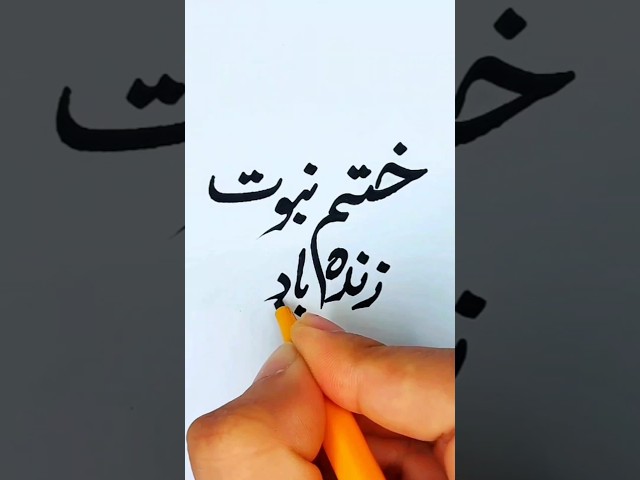 ختم نبوت
زنده باد